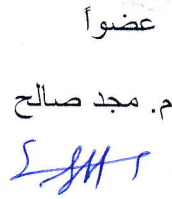 عضواً
م. مجد صالح